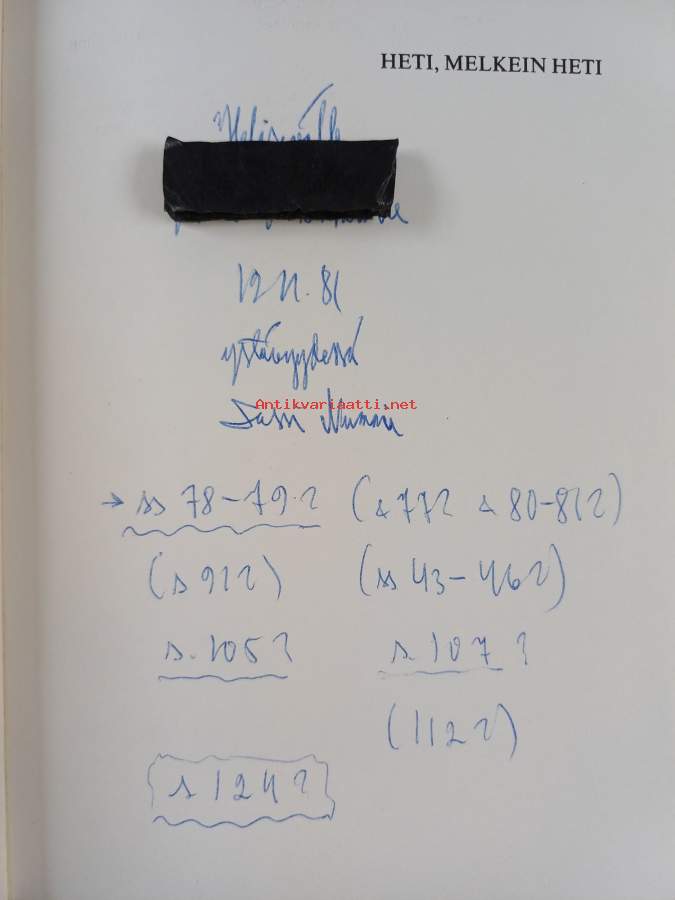 HETI, MELKEIN HETI
12 11. 81
ystävyydessä
Antikvariaatti.net
Lassi Nummi
→ ss 78-79? (s 77? s 80-81?)
(s 91?) (ss 43-46?)
s. 105? s. 107?
(112?)
s 124?